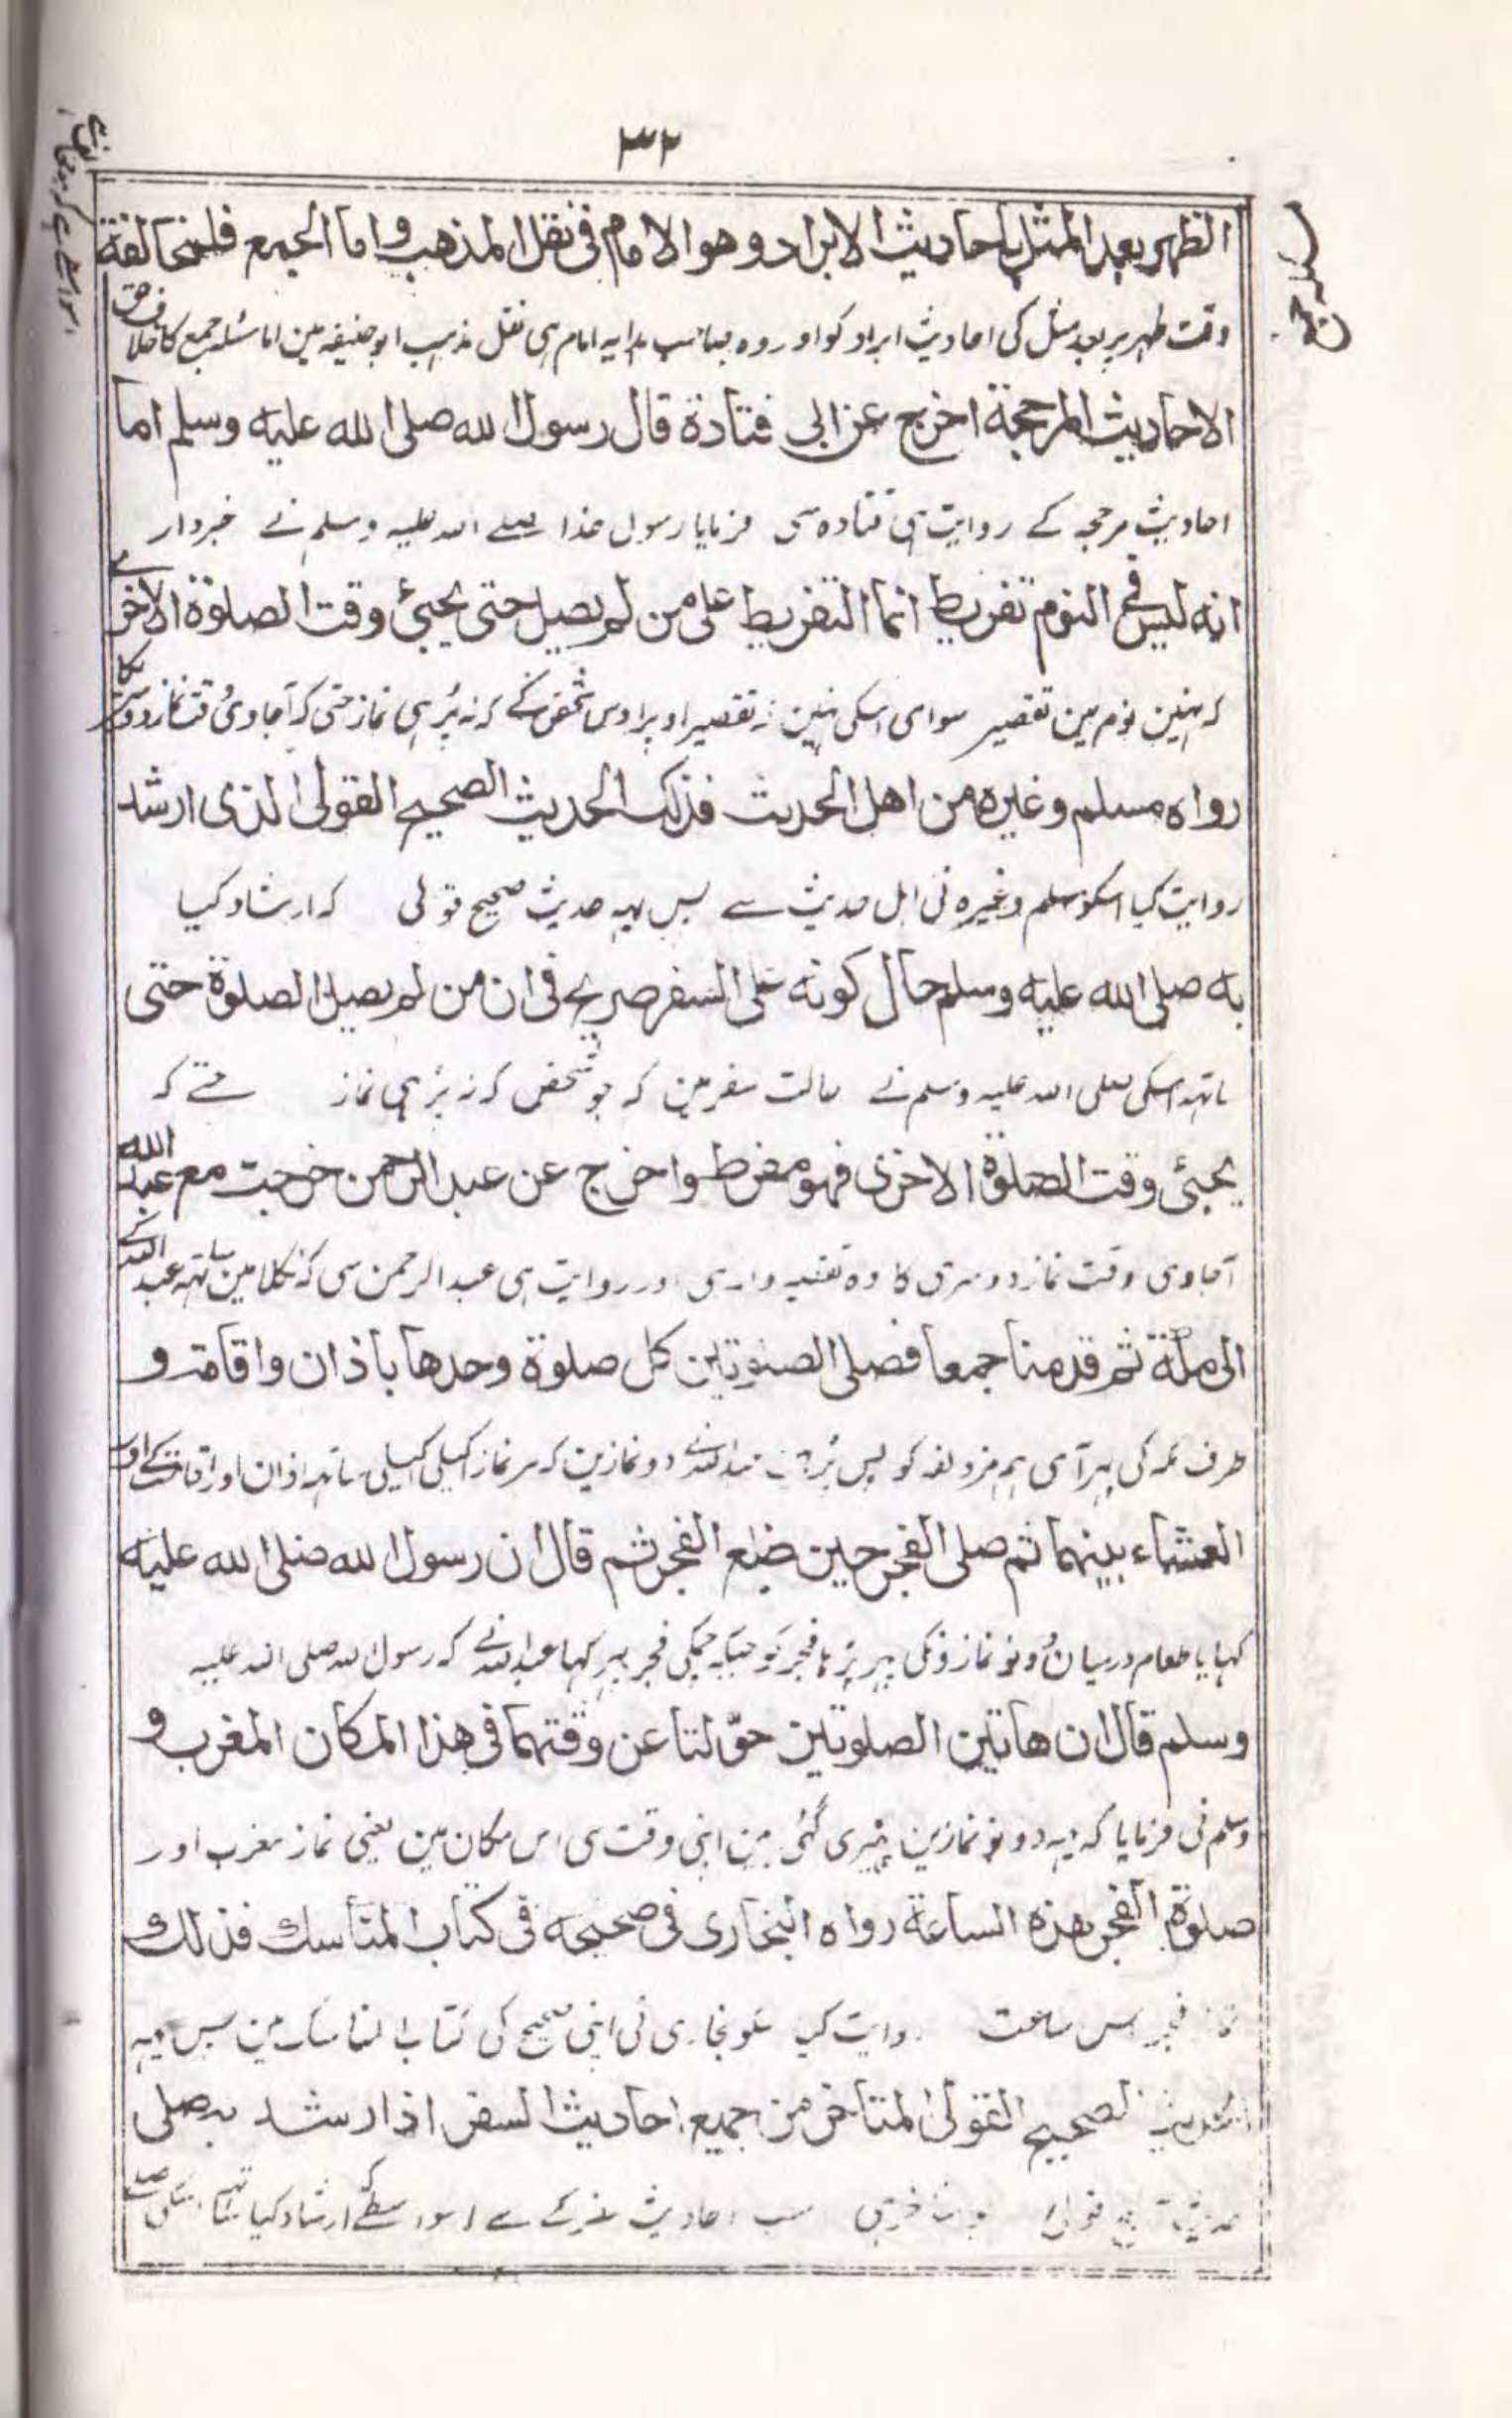 ٣٢
الظهر بعد المثل باحاديث الابراد وهو الامام فى نقل المذهب واما الجمع فلمخالفة
وقت ظهر پر بعد مثل کی احادیث ابراد کو اور وہ صاحب ہدایہ امام ہی نقل مذہب ابو حنیفہ مین اما مسئلہ جمع کا خلاف
الاحاديث المرجحة اخرج عن ابى قتادة قال رسول الله صلى الله عليه وسلم اما
احادیث مرجحہ کے روایت ہی قتادہ سی فرمایا رسول خدا صلے اللہ علیہ وسلم نے خبردار
انه ليس فى النوم تفريط انما التفريط على من لم يصل حتى يجيئ وقت الصلوة الاخرے
کہ نہین نوم مین تقصیر سوای اسکی نہین کہ تقصیر اوپر اوس شخص کے کہ نہ پڑہی نماز حتی کہ آجاوی وقت نماز دوسری کا
رواه مسلم وغيره من اهل الحديث فذلك الحديث الصحيح القولى الذى ارشد
روایت کیا اسکو مسلم وغیرہ نی اہل حدیث سے پس یہہ حدیث صحیح قولی کہ ارشاد کیا
به صلى الله عليه وسلم حال كونه على السفر صريح فى ان من لم يصل الصلوة حتى
ساتہہ اسکی صلی اللہ علیہ وسلم نے حالت سفر مین کہ جو شخص کہ نہ پڑہی نماز حتے کہ
يجيئ وقت الصلوة الاخرى فهو مفرط واخرج عن عبد الرحمن خرجت مع عبد الله
آجاوی وقت نماز دوسری کا وہ تقصیر واری اور روایت ہی عبد الرحمن سی کہ نکلا مین ساتہہ عبد اللہ کے
الى مكة ثم قدمنا جمعا فصلى الصلوتين كل صلوة وحدها باذان واقامة و
طرف مکہ کی پہر آی ہم مزدلفہ کو پس پڑہین عبد اللہ نے دو نمازین کہ ہر نماز اکیلی اکیلی ساتہہ اذان اور اقامت کے اور
العشاء بينهما ثم صلى الفجر حين طلع الفجر ثم قال ان رسول الله صلى الله عليه
کہایا طعام درمیان دونو نمازونکی پہر پڑہا فجر کو جبکہ چمکی فجر پہر کہا عبد اللہ نے کہ رسول اللہ صلی اللہ علیہ
وسلم قال ان هاتين الصلوتين حولتا عن وقتهما فى هذا المكان المغرب و
وسلم نی فرمایا کہ یہہ دونو نمازین پہیری گئی ہین اپنی وقت سی اس مکان مین یعنی نماز مغرب اور
صلوة الفجر هذه الساعة رواه البخارى فى صحيحه فى كتاب المناسك فذلك
نماز فجر اس ساعت روایت کیا بخاری نی اپنی صحیح کی کتاب المناسک مین پس یہہ
الحديث الصحيح القولى المتاخر من جميع احاديث السفر اذ ارشد به صلى
حدیث قولی سب احادیث سفر کے سے اسواسطے کہ ارشاد کیا ساتہہ